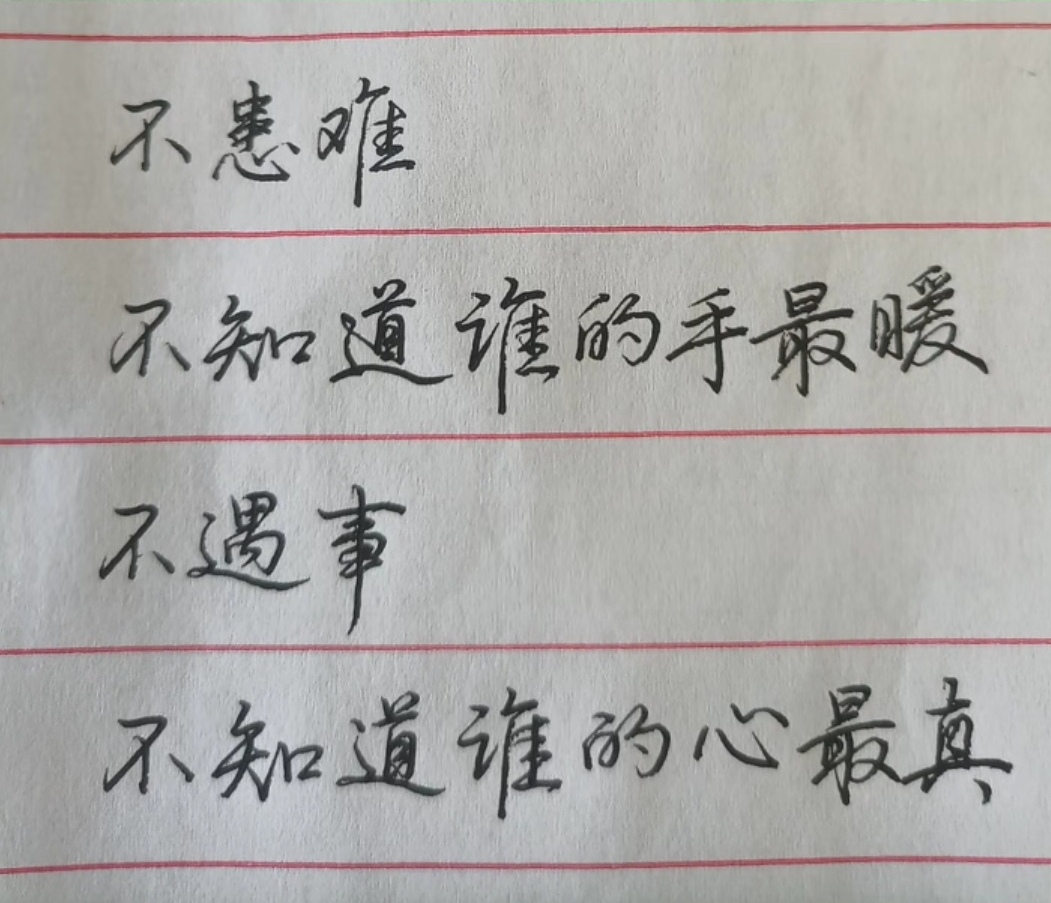 不患难
不知道谁的手最暖
不遇事
不知道谁的心最真